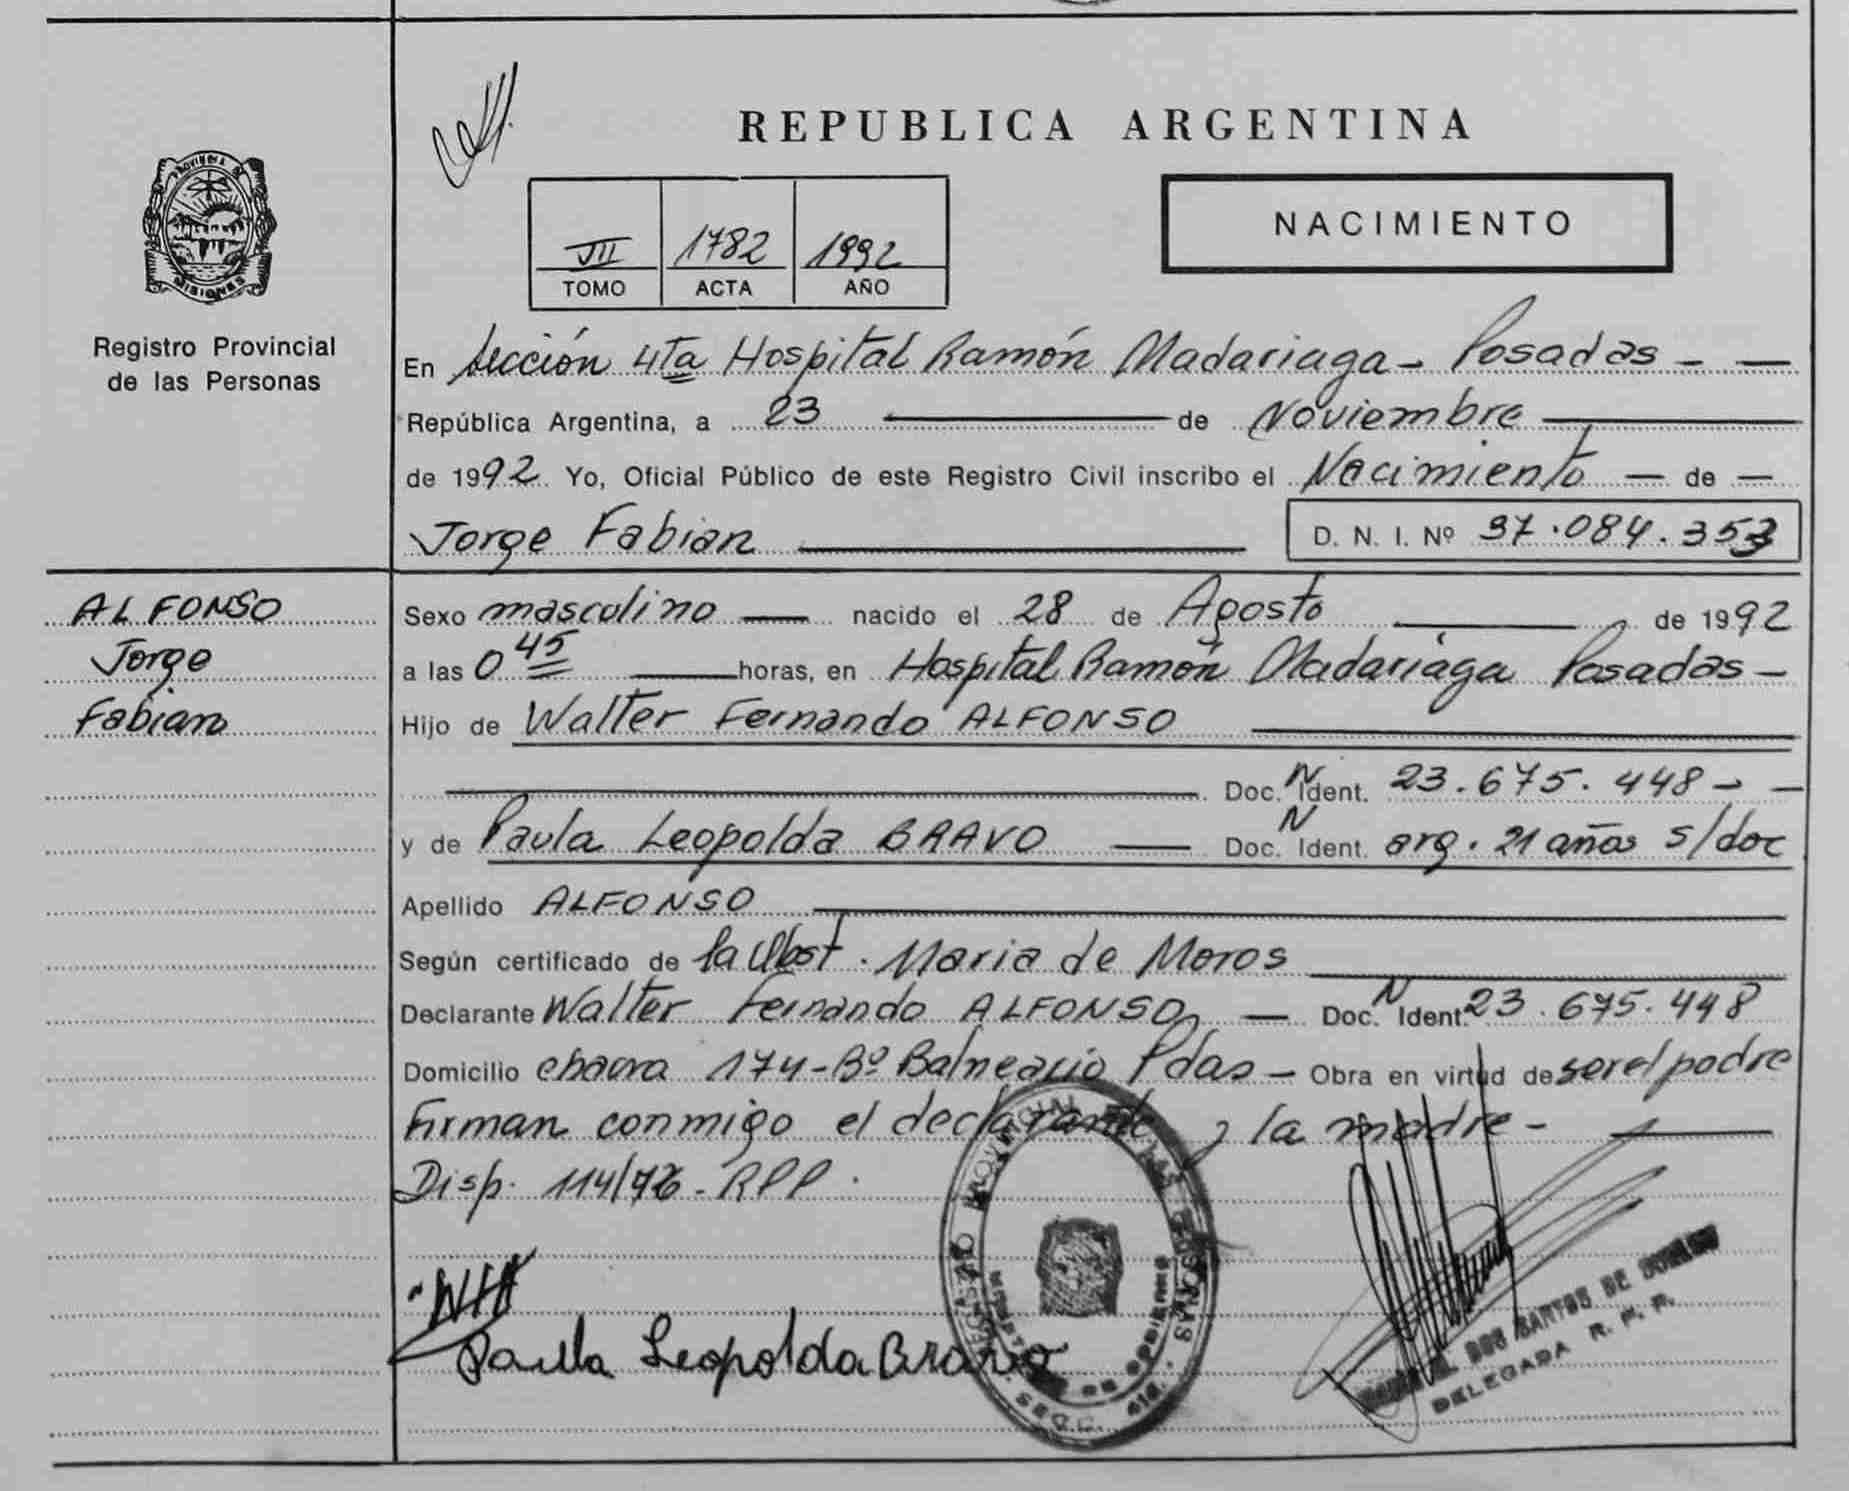 REPUBLICA ARGENTINA
PROVINCIA DE
MISIONES
Registro Provincial
de las Personas
III 1782 1992
TOMO ACTA AÑO
NACIMIENTO
En Sección 4ta Hospital Ramón Madariaga - Posadas - —
República Argentina, a 23 — de Noviembre —
de 1992 Yo, Oficial Público de este Registro Civil inscribo el Nacimiento — de —
Jorge Fabian — D. N. I. Nº 37.084.353
ALFONSO
Jorge
Fabian
Sexo masculino — nacido el 28 de Agosto — de 1992
a las 0 45 — horas, en Hospital Ramón Madariaga Posadas -
Hijo de Walter Fernando ALFONSO —
— Doc. N Ident. 23.675.448 - —
y de Paula Leopolda BRAVO — Doc. N Ident. arg. 21 años s/doc
Apellido ALFONSO —
Según certificado de la Obst. Maria de Moros —
Declarante Walter Fernando ALFONSO — Doc. N Ident. 23.675.448
Domicilio chacra 174 - Bº Balneario Pdas - Obra en virtud de ser el padre
Firman conmigo el declarante y la madre - —
Disp. 114/76 - RPP.
Paula Leopolda Bravo
DOS SANTOS DE
DELEGADA R. P. P.